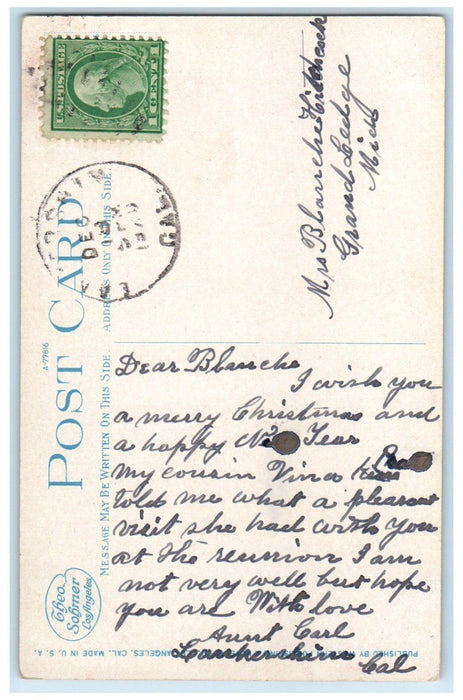 U.S. POSTAGE
1 CENT 1
DEC
CAL
Mrs Blanche Hitchcock
Grand Ledge
Mich
POST CARD
A-77816
ADDRESS ONLY ON THIS SIDE
MESSAGE MAY BE WRITTEN ON THIS SIDE.
Dear Blanche
I wish you
a merry Christmas and
a happy Year
my cousin Vina
told me what a pleasant
visit she had with you
at the reunion I am
not very well but hope
you are With love
Aunt Carl
Lankershim
Cal
Theo.
Sohmer
Los Angeles
PUBLISHED BY ANGELES, CAL. MADE IN U. S. A.